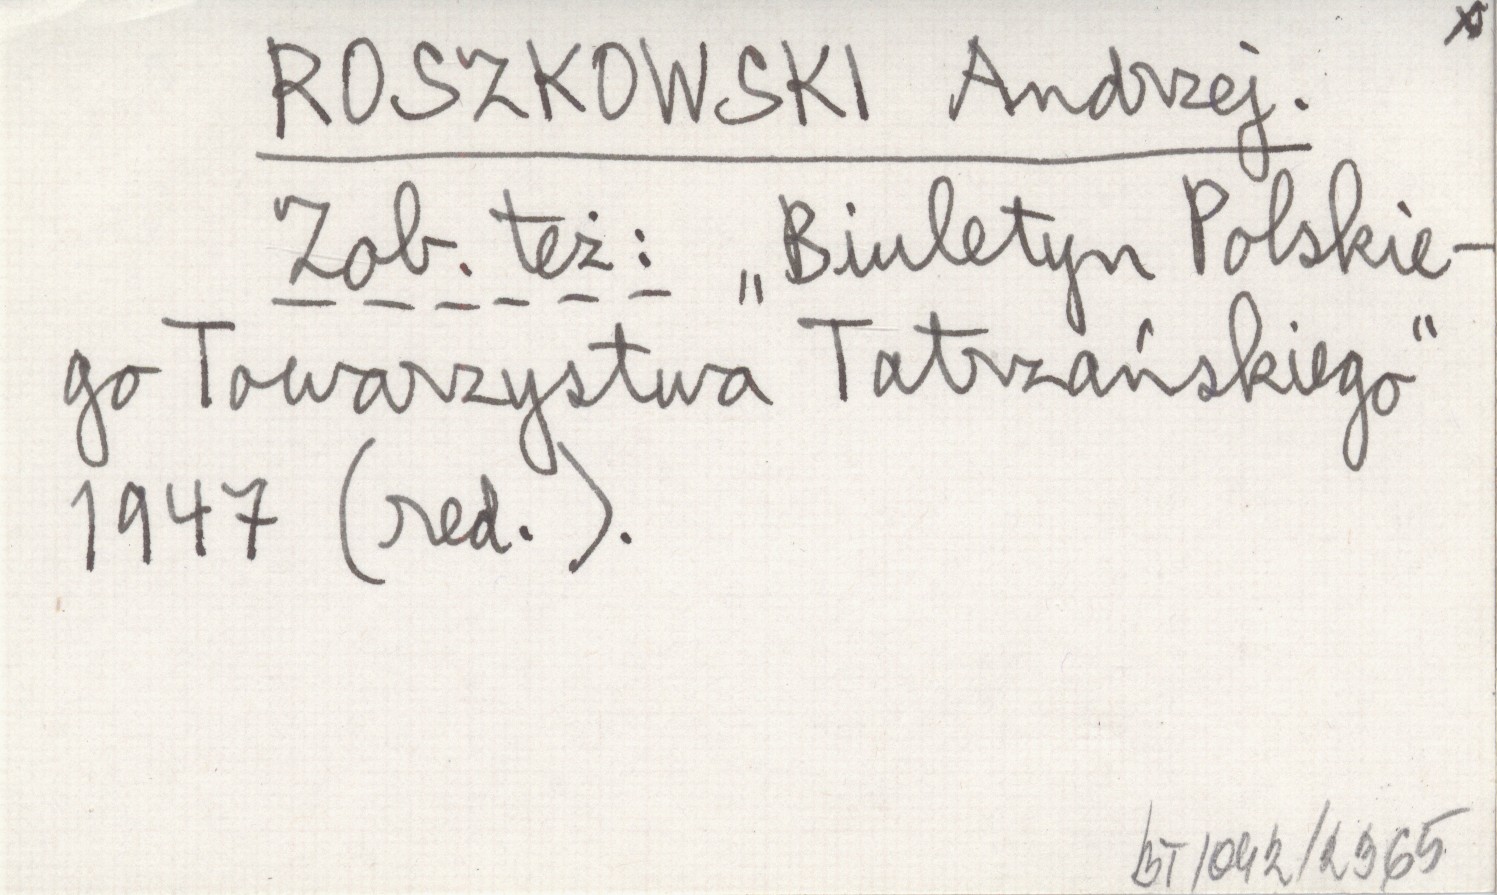 ROSZKOWSKI Andrzej.
Zob. też: „Biuletyn Polskie-
go Towarzystwa Tatrzańskiego"
1947 (red.).
BT/042/2965